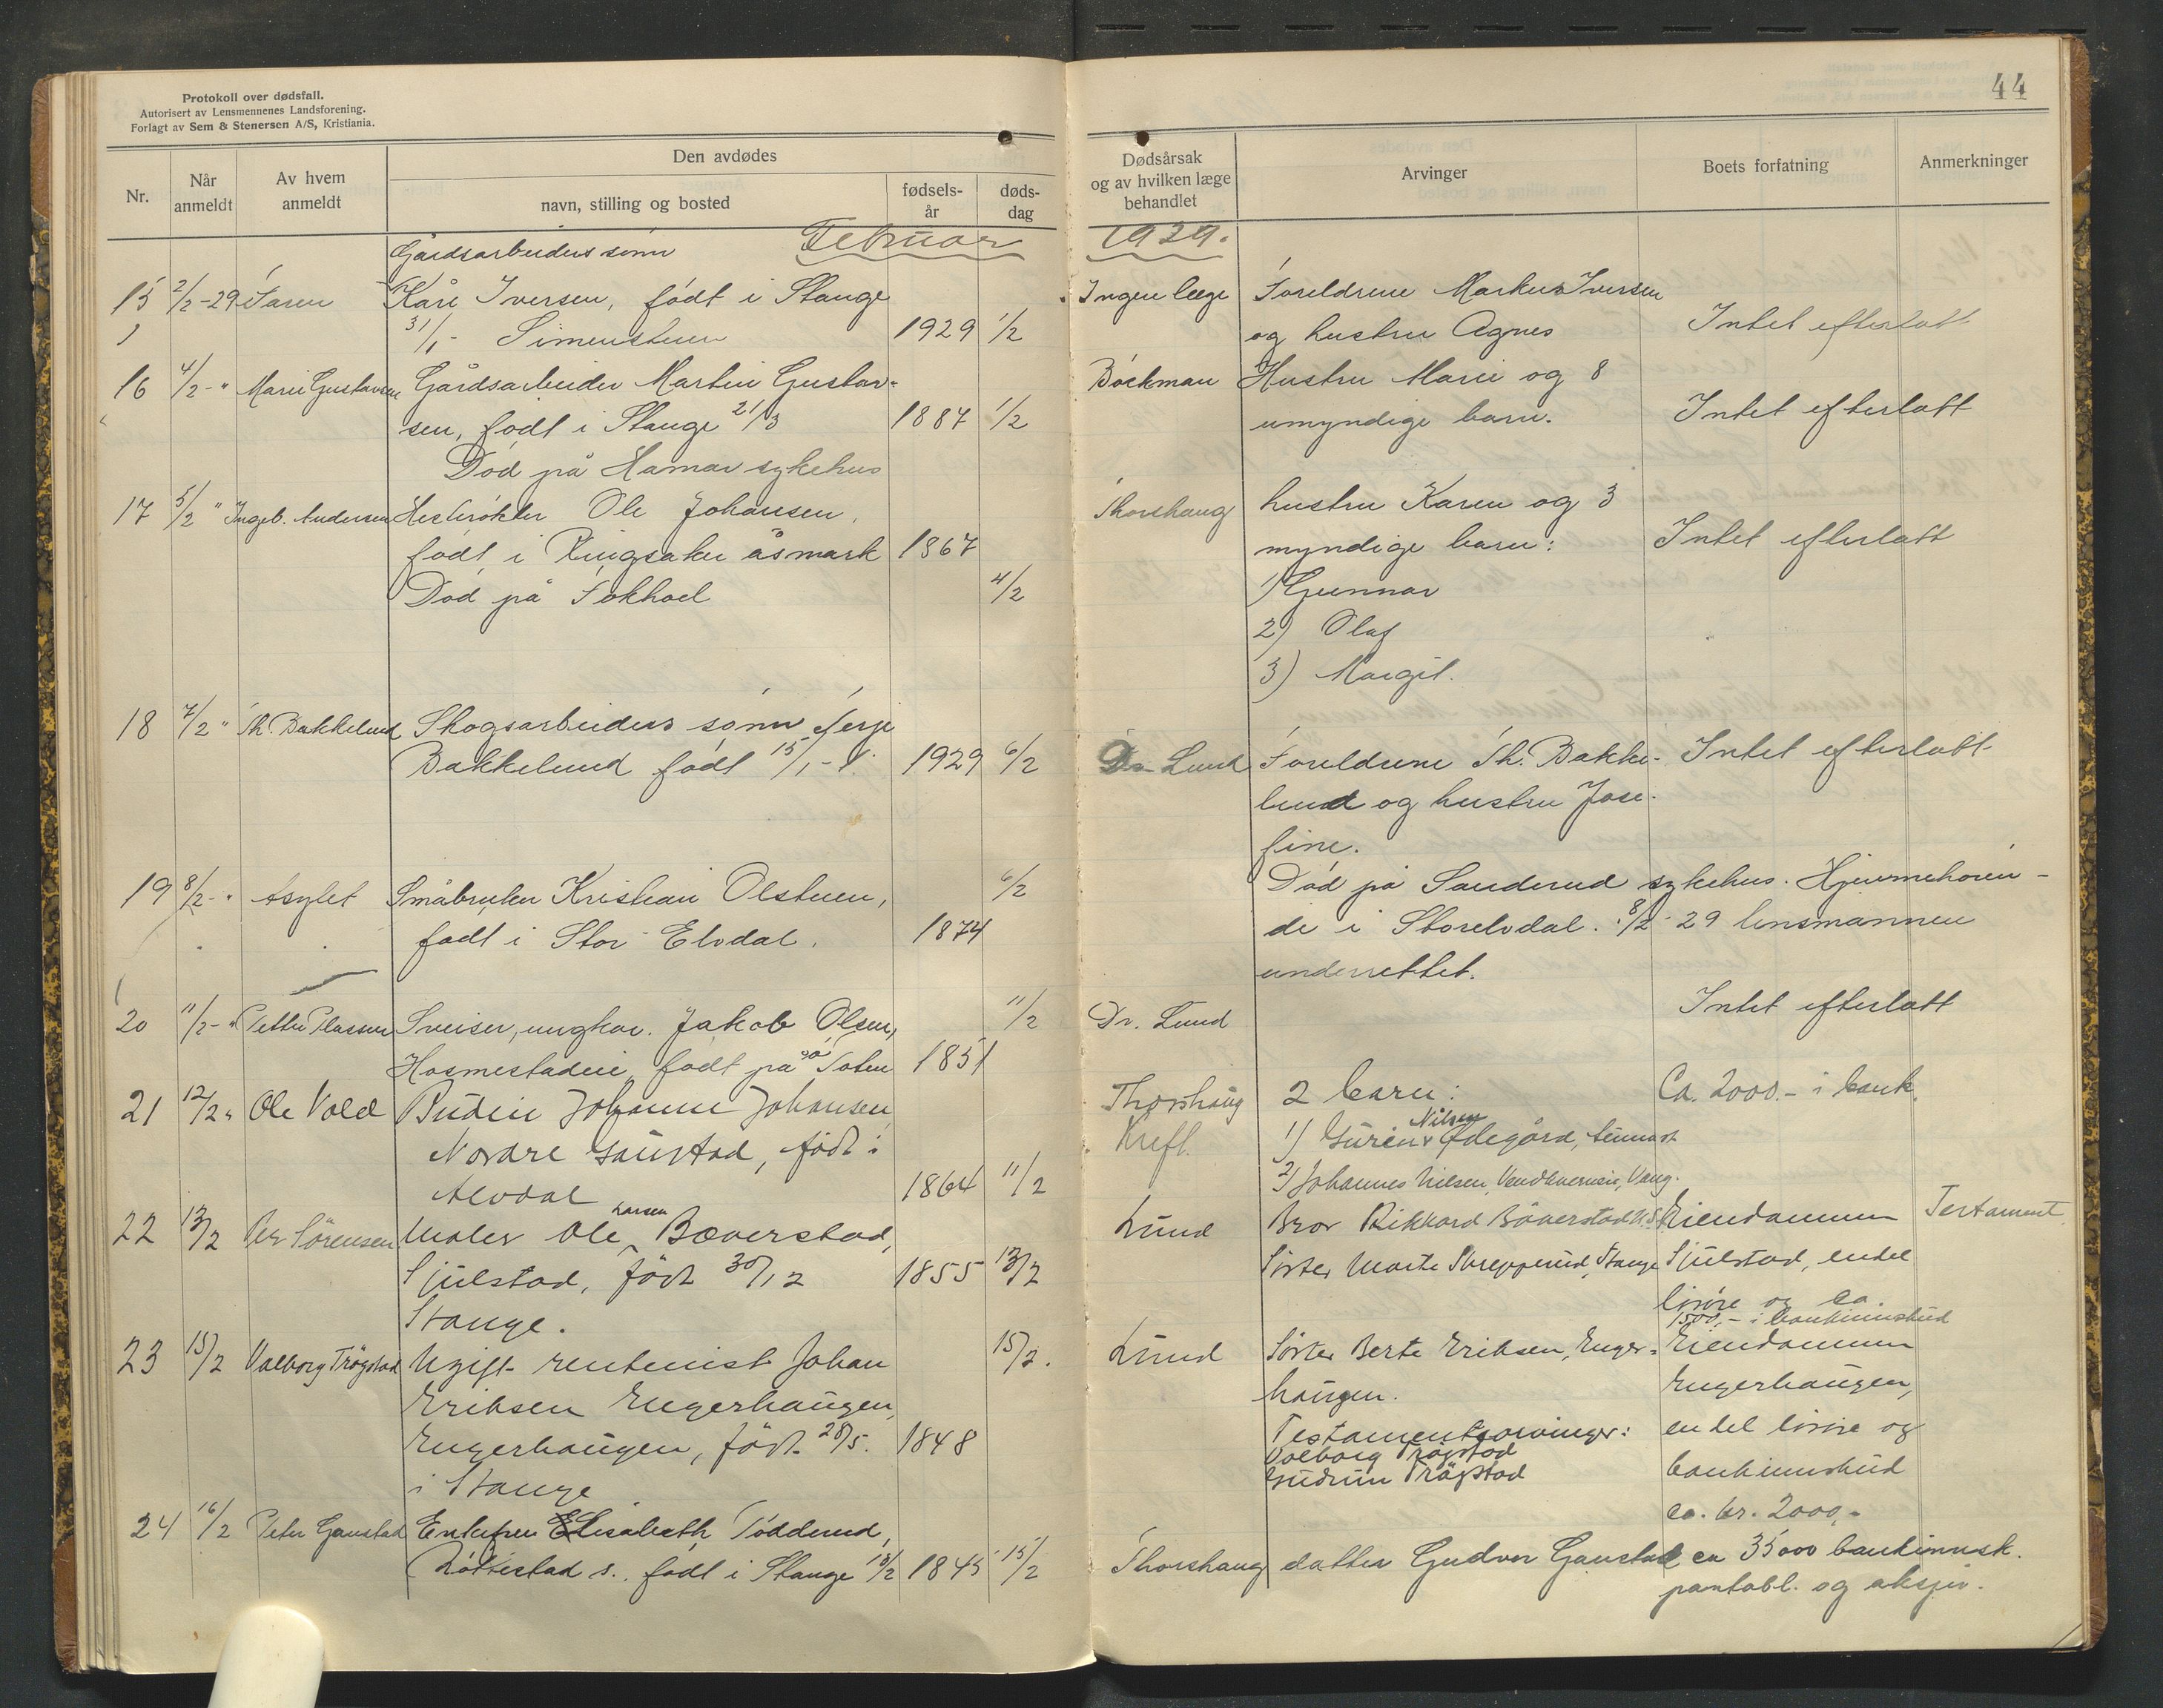 Protokoll over dødsfall.
Autorisert av Lensmennenes Landsforening.
Forlagt av Sem & Stenersen A/S, Kristiania.
44
Nr.
Når anmeldt
Av hvem anmeldt
Den avdødes
navn, stilling og bosted
fødsels-år
døds-dag
Dødsårsak og av hvilken læge behandlet
Arvinger
Boets forfatning
Anmerkninger
Februar 1929.
Gårdsarbeiders sønn
15 2/2-29 Faren Kåre Iversen, født i Stange Ingen læge Foreldrene Markus Iversen
31/1- Simenstuen 1929 1/2 og hustru Agnes Intet efterlatt
16 4/2-" Marie Gustavsen Gårdsarbeider Martin Gustav- Bøckman Hustru Marie og 8
sen, født i Stange 21/3 1887 1/2 umyndige barn. Intet efterlatt
Død på Hamar sykehus
17 5/2 " Ingeb. Andersen Hesterøkter Ole Johansen, Thorshaug hustru Karen og 3
født i Ringsaker åsmark 1867 myndige barn: Intet efterlatt
Død på Fokhoel 4/2 1) Gunnar
2) Olaf
3) Margit.
18 7/2 " Th. Bakkelund Skogsarbeiders sønn Terje
Bakkelund født 15/1- 1929 6/2 Dr. Lund Foreldrene Th. Bakke- Intet efterlatt
lund og hustru Jose-
fine.
19 8/2-" Asylet Småbruker Kristian Olstuen, 6/2 Død på Sanderud sykehus. Hjemmehøren-
født i Stor-Elvdal. 1874 de i Storelvdal. 8/2-29 lensmannen
underrettet.
20 11/2-" Petter Plassen Sveiser, ungkar. Jakob Olsen, 11/2 Dr. Lund Intet efterlatt
Hosmestadeie, født på Toten 1851
21 12/2 " Ole Vold Budeie Johanne Johansen Thorshaug 2 barn: Ca. 2000.- i bank.
Nordre Gaustad, født i Kreft. 1) Guren Nilsen Ødegård,
Alvdal 1864 11/2 2) Johannes Nilsen, Vang.
22 13/2 Per Sörensen Maler Ole Larsen Bæverstad, Lund Bror Rikkard Bäverstad Eiendommen Testament
Sjulstad, födt 30/12 1855 13/2 Söster Marte Skrepperud, Stange Sjulstad, endel
Stange. lösöre og ca.
1500,- i bankinnskud
23 15/2 Valborg Trögstad Ugift rentenist Johan 15/2. Lund Söster Berte Eriksen, Enger- Eiendommen
Eriksen Engerhaugen, haugen. Engerhaugen,
Engerhaugen, födt 28/5. 1848 Testamentsarvinger: en del lösöre og
i Stange Valborg Trögstad bankinnskud
Gudrun Trögstad ca. kr. 2000,-
24 16/2 Peter Gaustad Enkefru Elisabeth Tødderud,
s., født i Stange 13/2 1845 15/2 Thorshaug datter Gudver Gaustad ca 35000 bankinnsk.
pantobl. og aksjer.